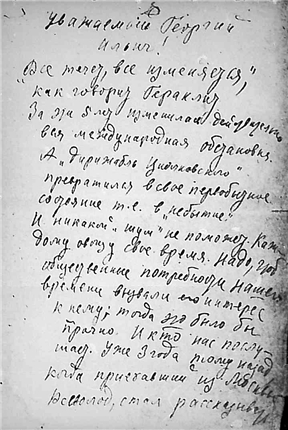 Уважаемый Георгий
Ильич!
"Все течет, все изменяется",
как говорит Гераклит
За эти 5 лет изменилась действительно
вся международная обстановка.
А "Дирижабль Циолковского"
превратился в свое первобытное
состояние т.е. в "небытие".
И никакой "шум" не поможет. Каж
дому овощу свое время. Надо, чтоб
общественные потребности нашего
времени вызвали его интерес
к нему; тогда это было бы
прочно. И кто нас послу
шает. Уже 3 года тому назад
когда приехавший из Москвы
Всеволод, стал рассказывать